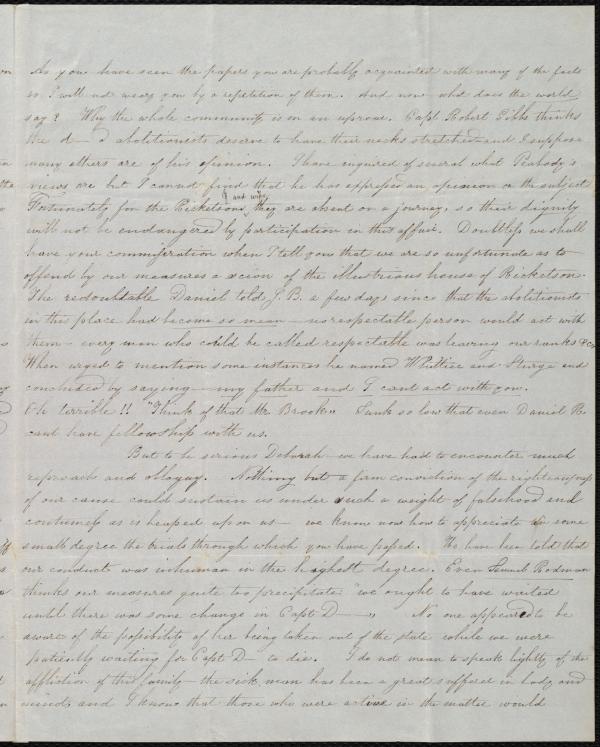 As you have seen the papers you are probably acquainted with many of the facts
so I will not weary you by a repetition of them. And now what does the world
say? Why the whole community is in an uproar. Capt. Robert Gibbs thinks
the d—d abolitionists deserve to have their necks stretched and I suppose
many others are of his opinion. I have inquired of several what Peabody's
views are but I cannot find that he has expressed an opinion on the subject
J. and wife
Fortunately for the Ricketsons they are absent on a journey, so their dignity
will not be endangered by participation in this affair. Doubtless we shall
have your commiseration when I tell you that we are so unfortunate as to
offend by our measures a scion of the illustrious house of Ricketson.
The redoubtable Daniel told J. B. a few days since that the abolitionists
in this place had become so mean — no respectable person would act with
them — every man who could be called respectable was leaving our ranks &c
When urged to mention some instances he named Whittier and Sturge and
concluded by saying — my father and I cant act with you.
Oh terrible!! "Think of that Mr. Brook" Sunk so low that even Daniel R.
cant have fellowship with us.
But to be serious Deborah — we have had to encounter much
reproach and obloquy. Nothing but a firm conviction of the righteousness
of our cause could sustain us under such a weight of falsehood and
contumely as is heaped upon us — we know now how to appreciate in some
small degree the trials through which you have passed. We have been told that
our conduct was inhuman in the highest degree. Even Samuel Rodman
thinks our measures quite too precipitate "we ought to have waited
until there was some change in Capt D——" No one appeared to be
aware of the possibility of her being taken out of the state while we were
patiently waiting for Capt D— to die. I do not mean to speak lightly of the
affliction of this family — the sick man has been a great sufferer in body and
mind, and I know that those who were active in the matter would